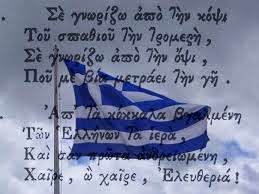 Σὲ γνωρίζω ἀπὸ τὴν κόψι
Τοῦ σπαθιοῦ τὴν τρομερὴ,
Σὲ γνωρίζω ἀπὸ τὴν ὄψι,
Ποῦ μὲ βία μετράει τὴν γῆ.
Ἀπ' τὰ κόκκαλα βγαλμένη
Τῶν Ἑλλήνων τὰ ἱερὰ,
Καὶ σὰν πρῶτα ἀνδρειωμένη,
Χαῖρε, ὦ χαῖρε, Ἐλευθεριά!